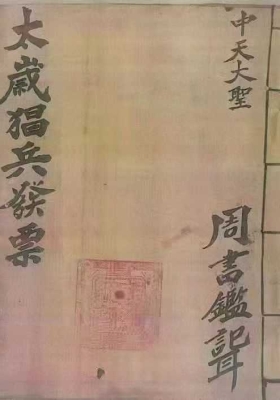 中天大聖
周書鑑
太歲猖兵發票